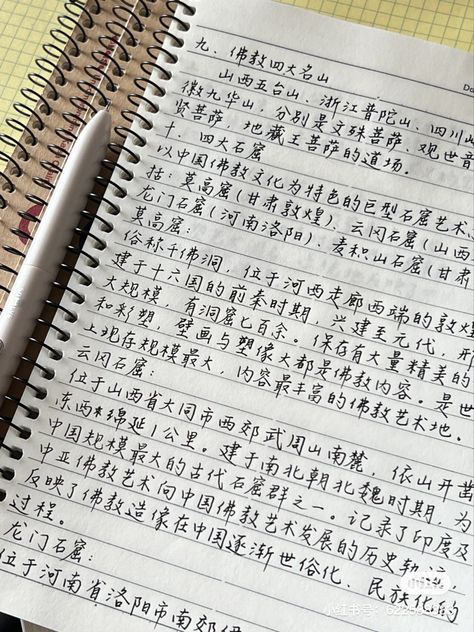 九、佛教四大名山
山西五台山、浙江普陀山、四川山
徽九华山，分别是文殊菩萨，观世音
贤菩萨，地藏王菩萨的道场。
十、四大石窟
以中国佛教文化为特色的巨型石窟艺术
括：莫高窟(甘肃敦煌)、云冈石窟(山西
龙门石窟(河南洛阳)、麦积山石窟(甘肃
莫高窟：
俗称千佛洞，位于河西走廊西端的敦煌
建于十六国的前秦时期，兴建至元代，开
大规模，有洞窟七百余。保存有大量精美的
和彩塑，壁画与塑像大都是佛教内容。是世
上现存规模最大，内容最丰富的佛教艺术地。
云冈石窟：
位于山西省大同市西郊武周山南麓，依山开凿
东西绵延1公里。建于南北朝北魏时期，为
中国规模最大的古代石窟群之一。记录了印度及
中亚佛教艺术向中国佛教艺术发展的历史轨
反映了佛教造像在中国逐渐世俗化、民族化的
过程。
龙门石窟：
位于河南省洛阳市南郊伊
小红书
小红书号：